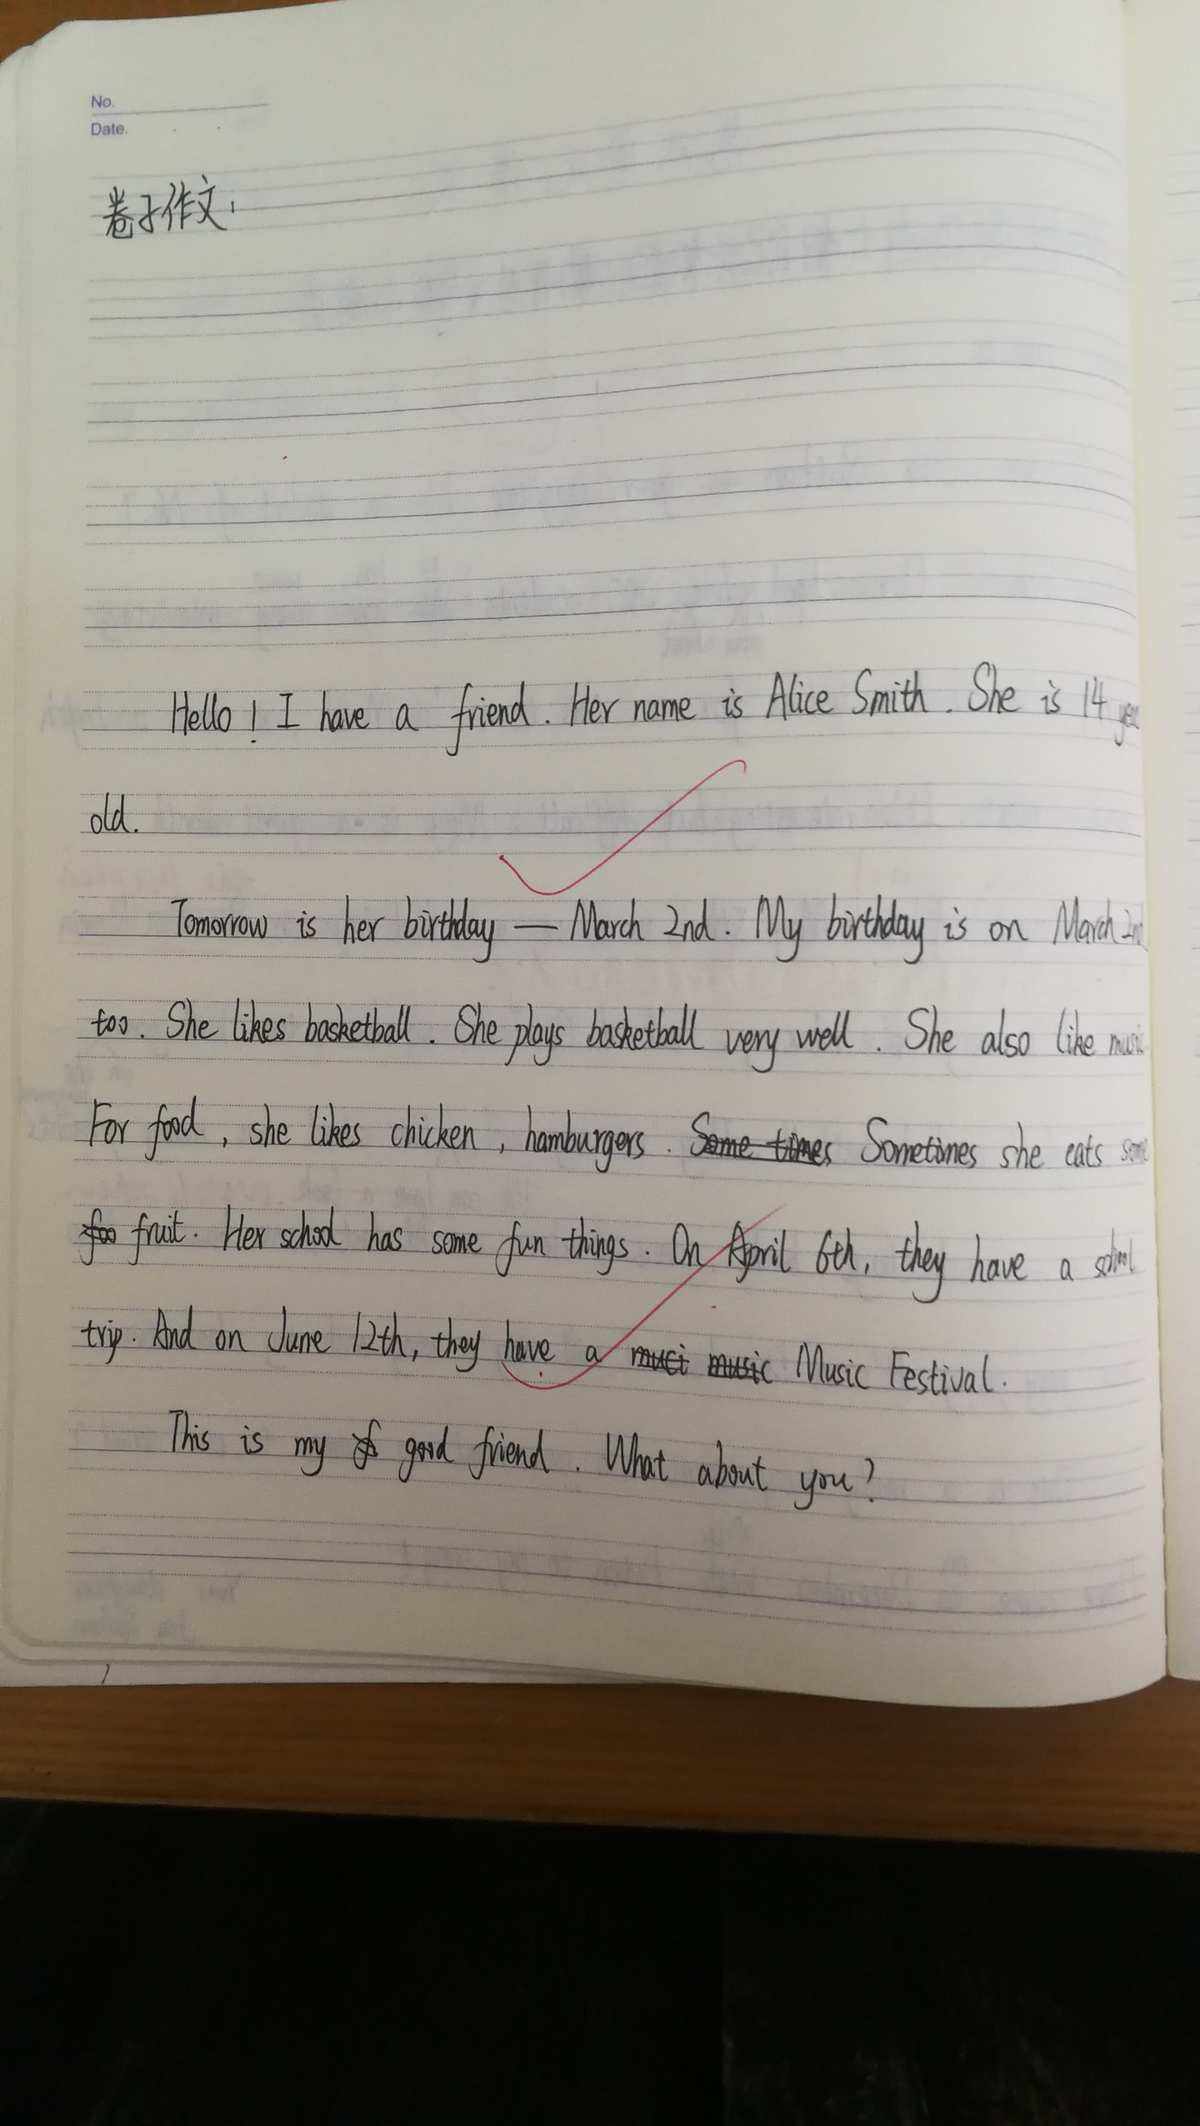 No.
Date.
卷子作文:
Hello! I have a friend. Her name is Alice Smith. She is 14
old.
Tomorrow is her birthday — March 2nd. My birthday is on March 2nd
too. She likes basketball. She plays basketball very well. She also like music
For food, she likes chicken, hamburgers. Some times Sometimes she eats some
foo fruit. Her school has some fun things. On April 6th, they have a school
trip. And on June 12th, they have a muci music Music Festival.
This is my good friend. What about you?